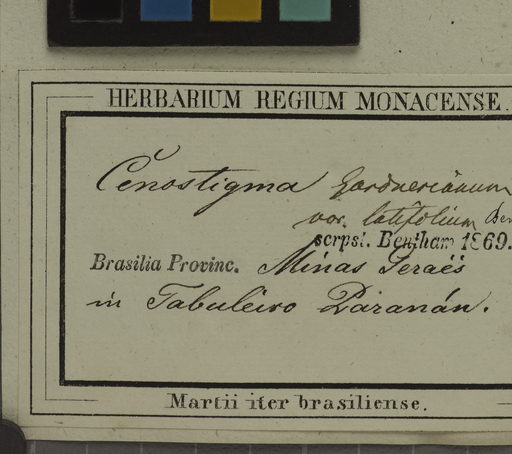 HERBARIUM REGIUM MONACENSE.
Cenostigma Gardnerianum
var. latifolium Ben
scrpsi. Bentham 1869.
Brasilia Provinc. Minas Geraës
in Tabuleiro Paranán.
Martii iter brasiliense.